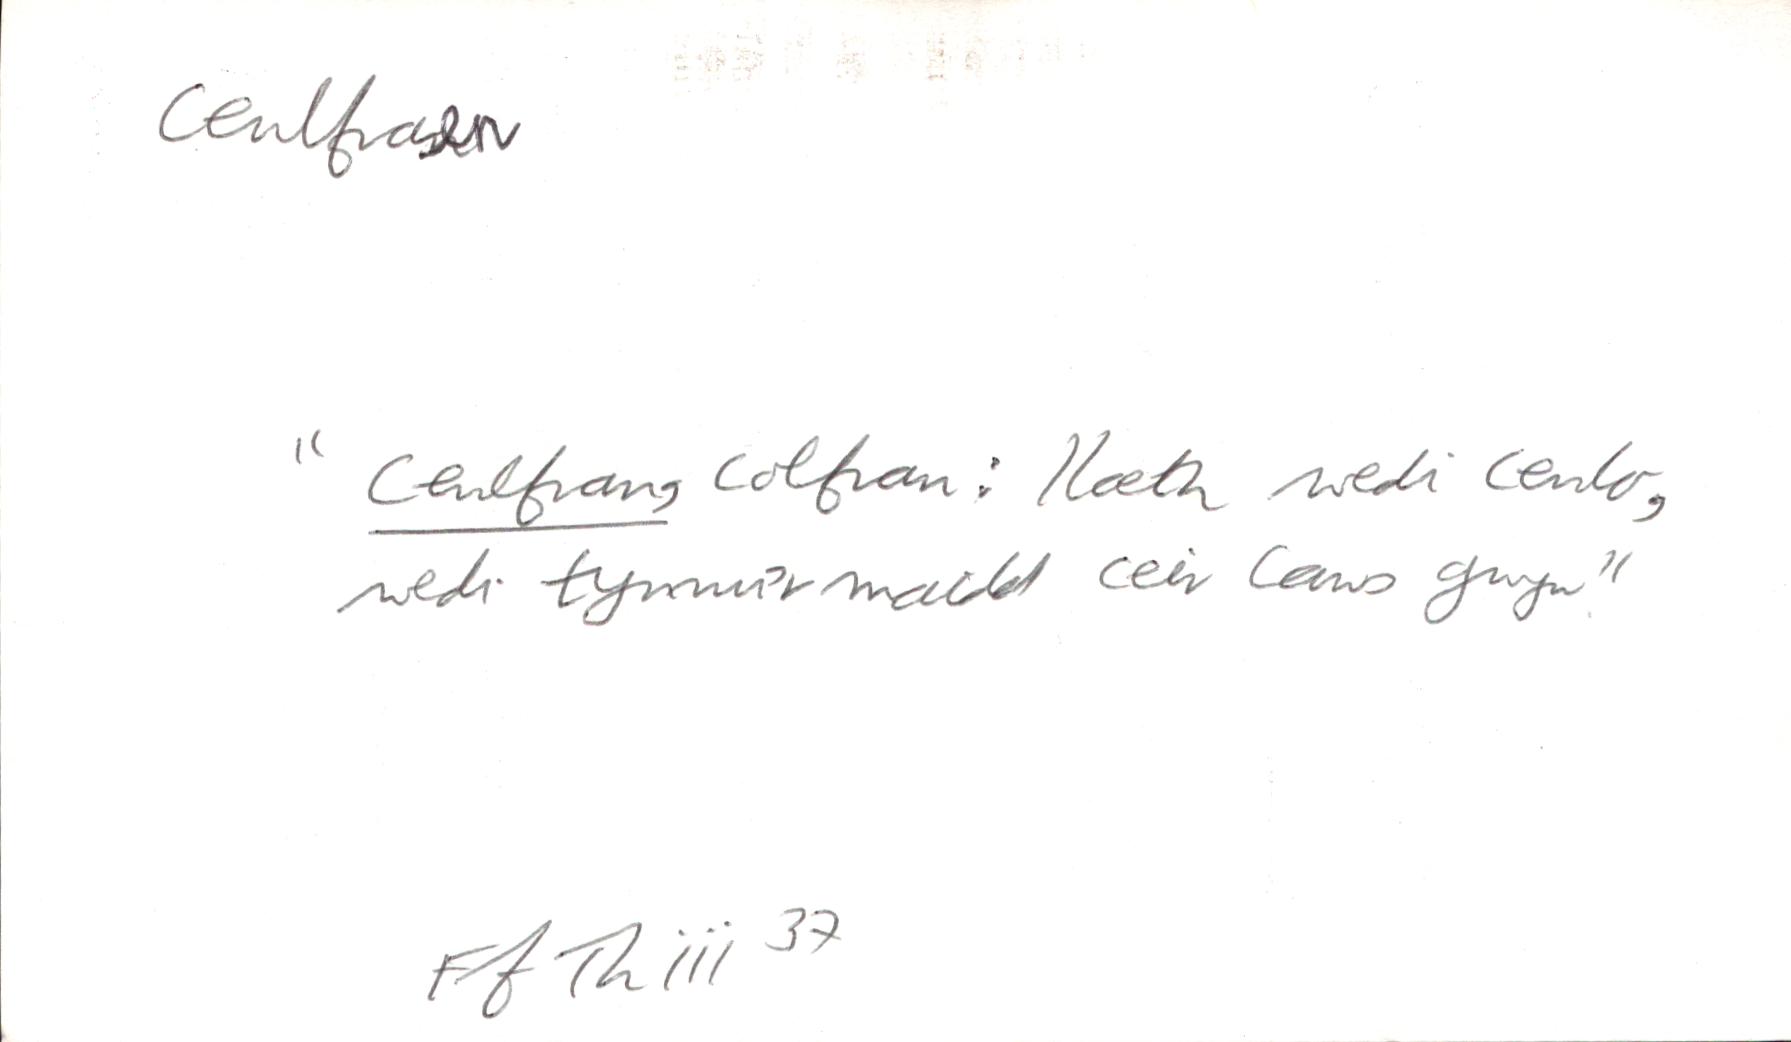 Ceulfraen
" Ceulfran, Colfran: llaeth wedi ceulo,
wedi tynnu'r maidd ceir Caws gwyn"
Ff Th iii 37